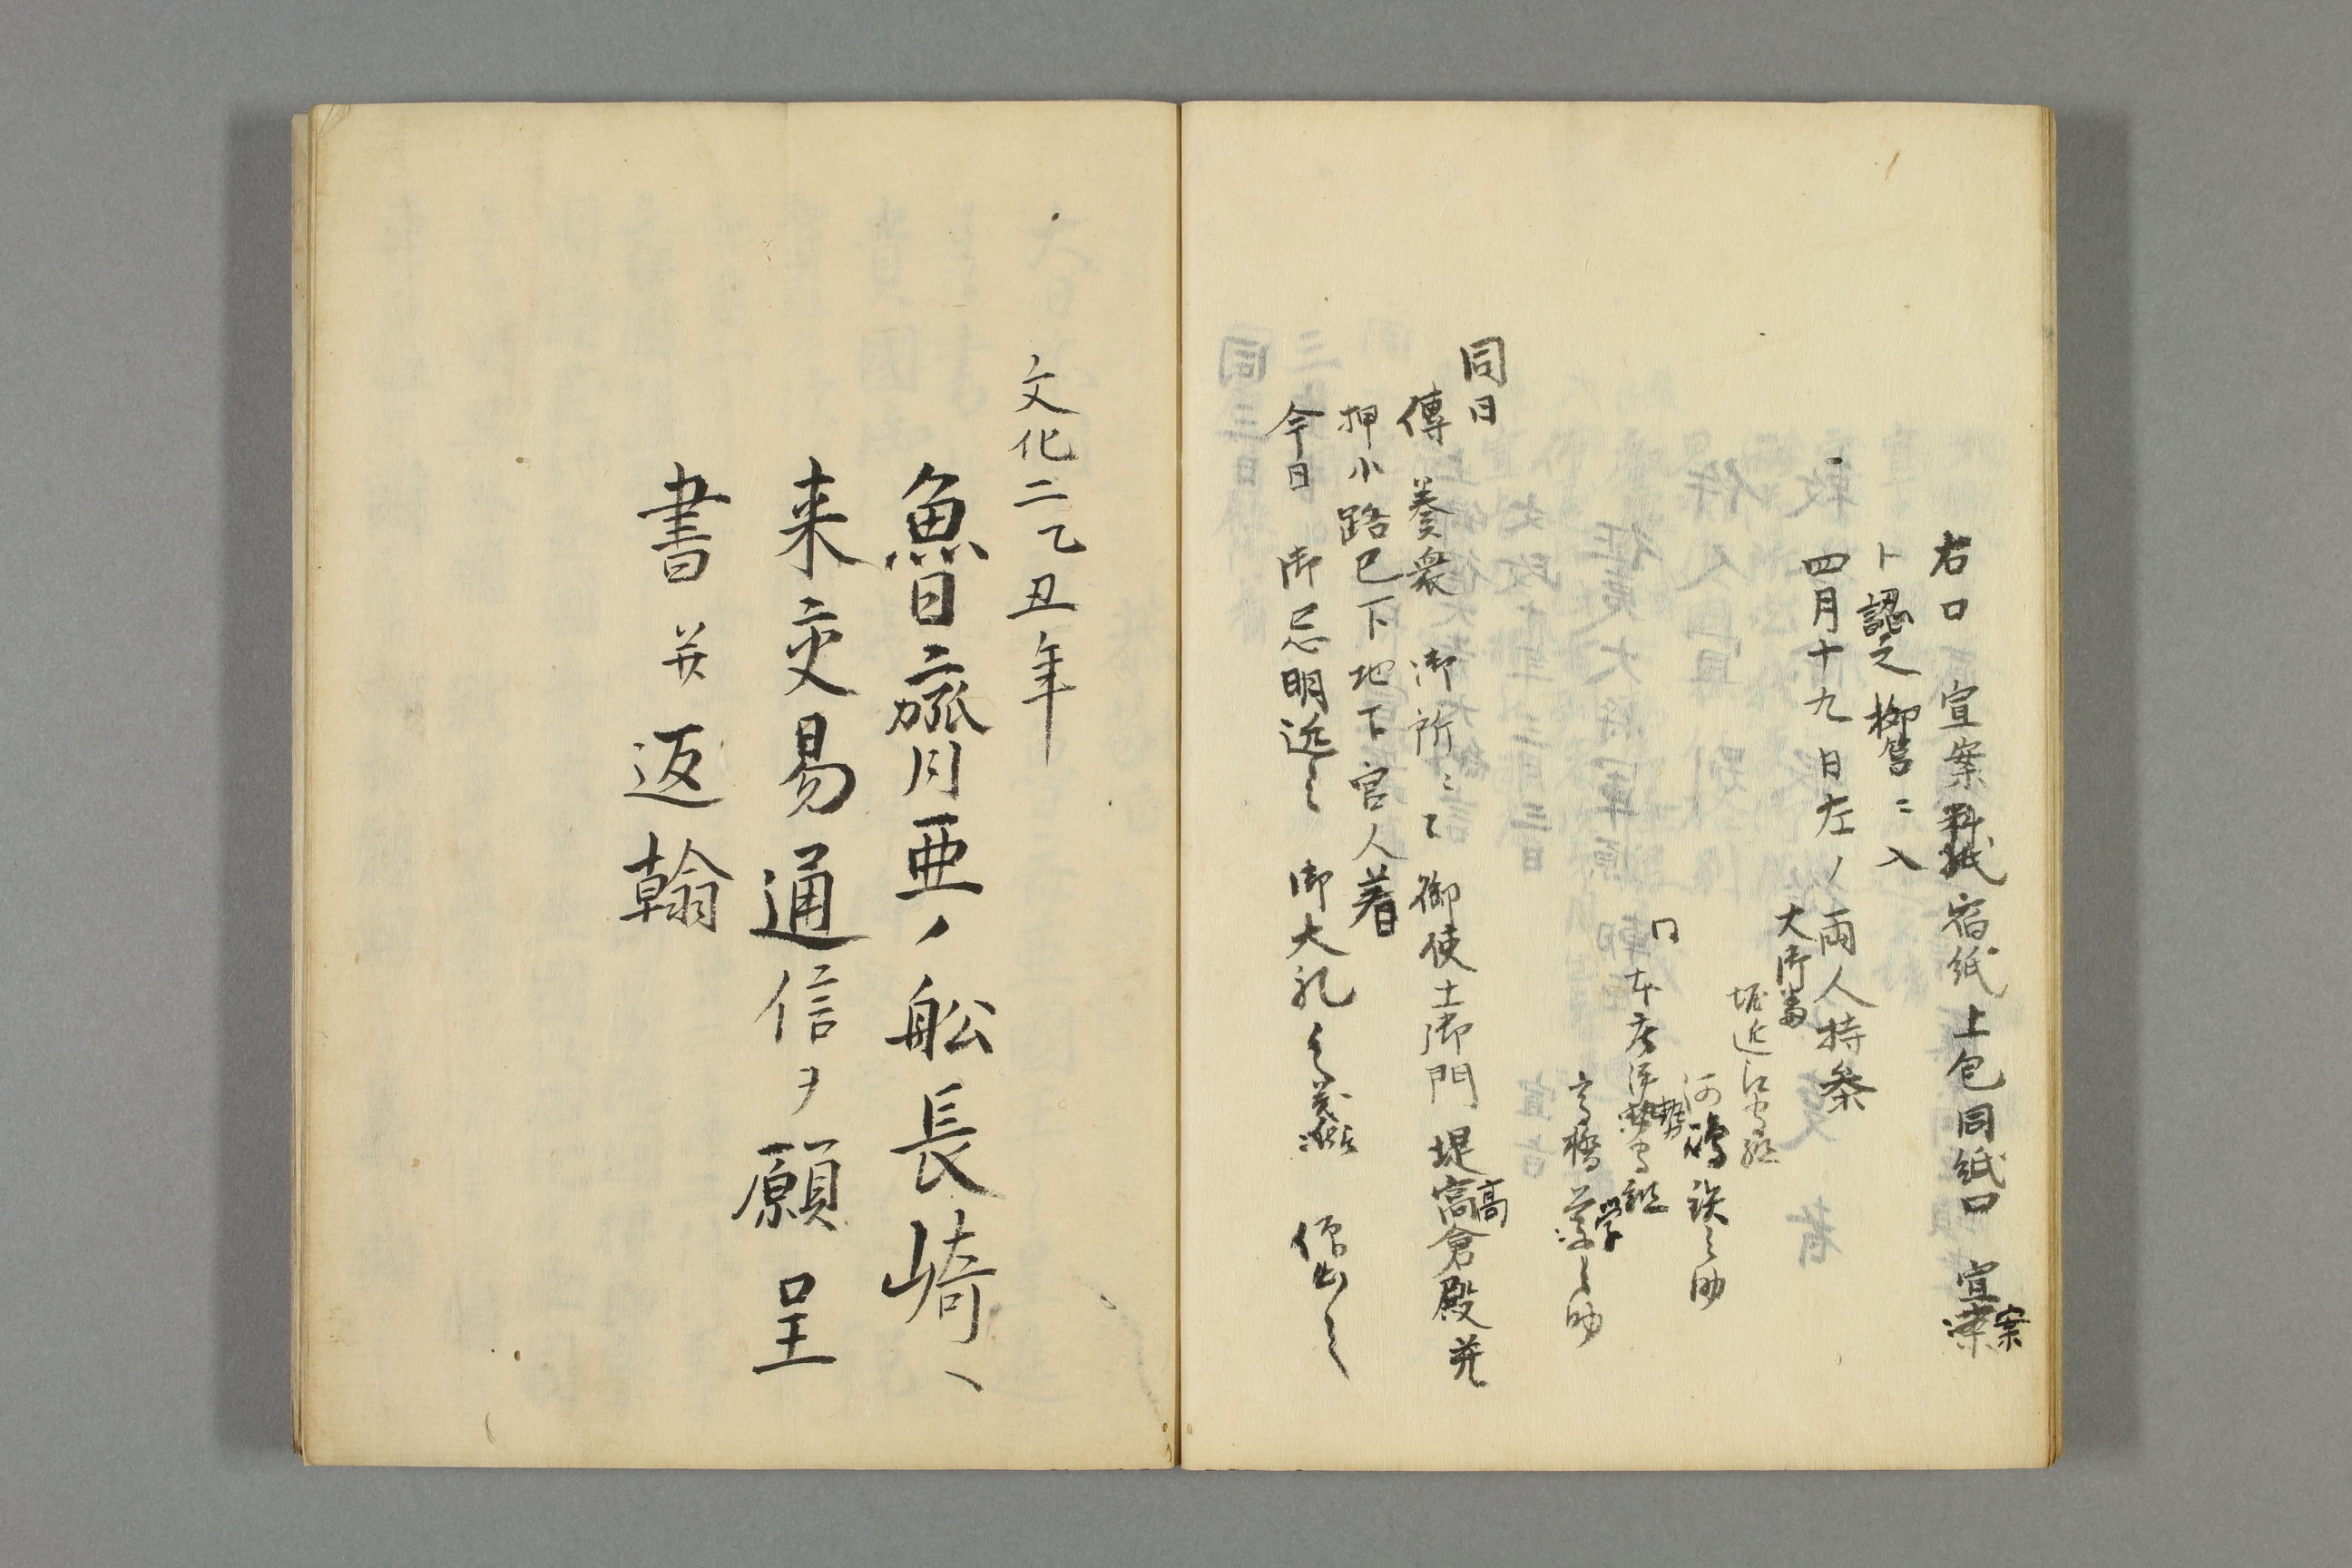 右口 宣案料紙宿紙上包同紙口 宣案
ト認之柳筥ニ入
四月十九日左ノ両人持参
大御番
堀近江守組
河嶋鉄之助
同 本庄伊勢守組
高橋学之助
同日
傳 奏衆 御所ゟ之御使土御門堤高倉殿并
押小路已下地下官人着
今日 御忌明 御大礼
文化二乙丑年
魯齊亜ノ舩長崎へ
来交易通信ヲ願呈
書并返翰